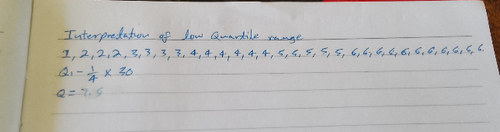 Interpretation of low Quardile range
1, 2, 2, 2, 3, 3, 3, 3, 4, 4, 4, 4, 4, 4, 4, 5, 5, 5, 5, 5, 6, 6, 6, 6, 6, 6, 6, 6, 6, 6
Q₁ = 1/4 × 30
Q = 7.5